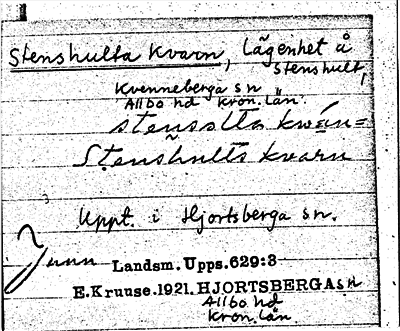 Stenshulta Kvarn, lägenhet å
Stenshult,
Kvenneberga sn
Allbo hd Kron. län.
stensolta kwán=
Stenshults kvarn
Uppt. i Hjortsberga sn.
Landsm. Upps. 629:8
E. Kruuse. 1921. HJORTSBERGA sn
Allbo hd
Kron. län.